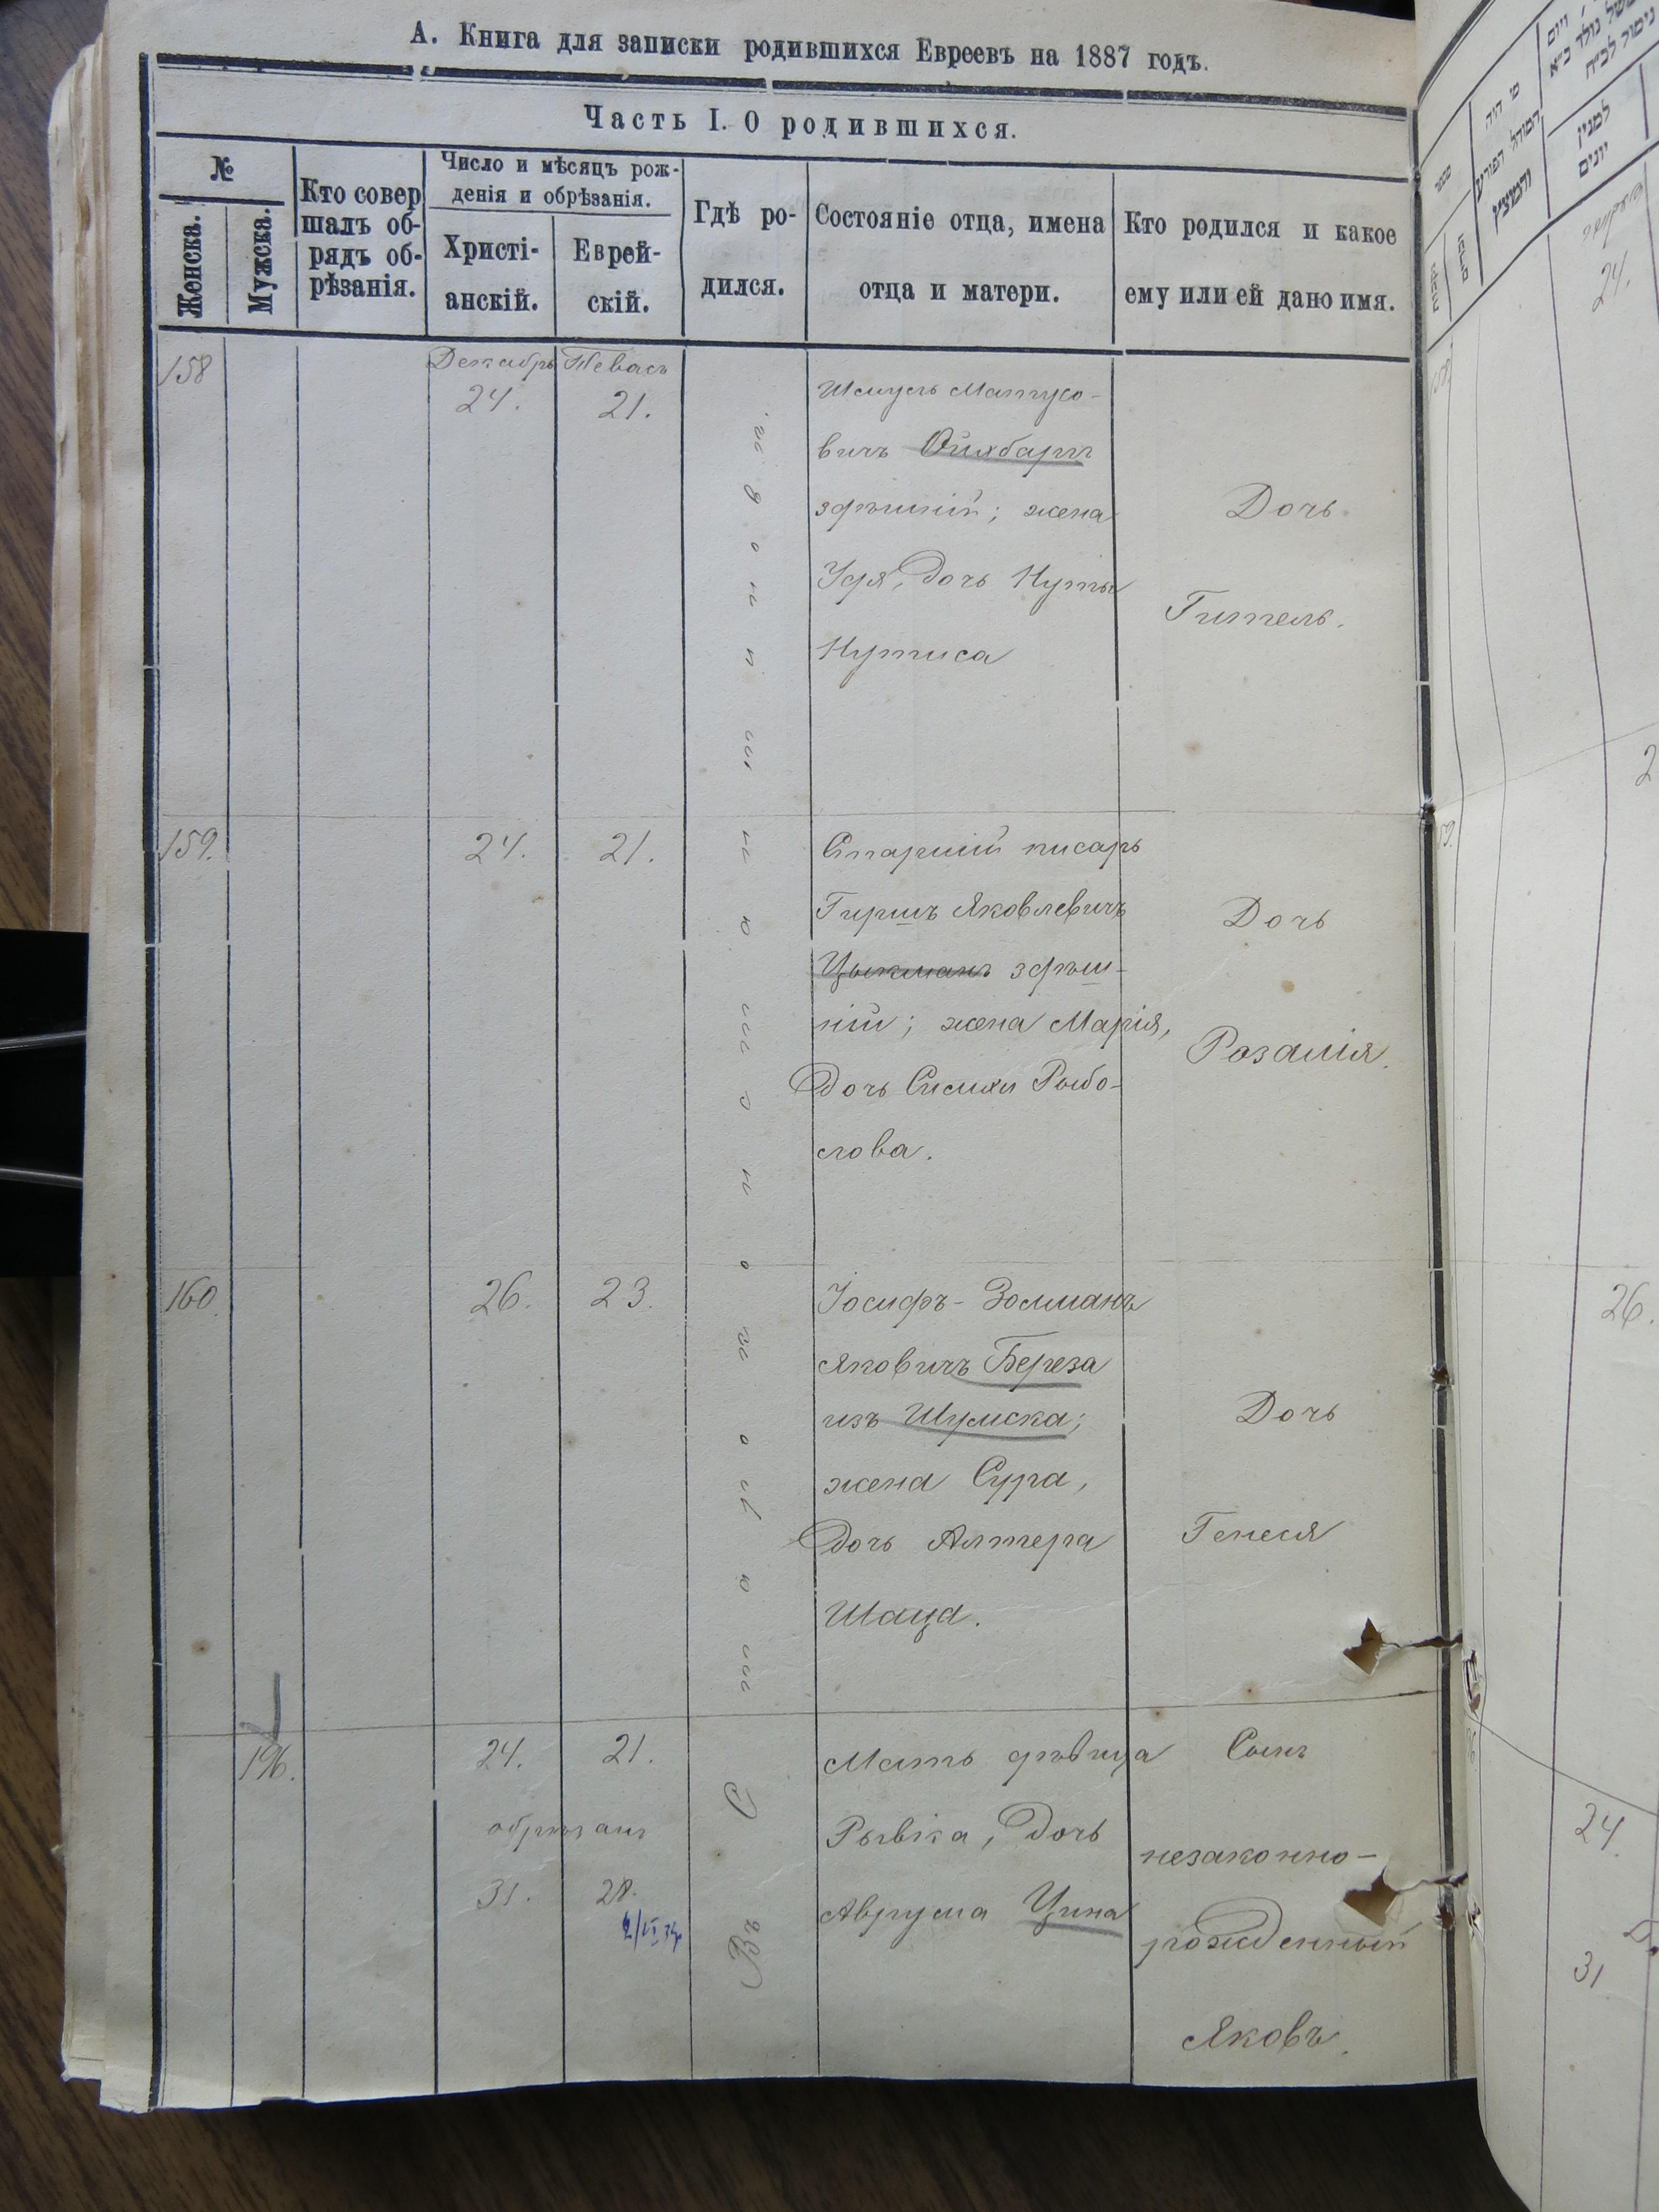 А. Книга для записки родившихся Евреевъ на 1887 годъ.
Часть I. О родившихся.
№
Женска.
Мужска.
Кто совер
шалъ об-
рядъ об-
рѣзанія.
Число и мѣсяцъ рож-
денія и обрѣзанія.
Христі-
анскій.
Еврей-
скій.
Гдѣ ро-
дился.
Состояніе отца, имена
отца и матери.
Кто родился и какое
ему или ей дано имя.
158
Декабрь
24.
Тевасъ
21.
Шмуль Матусо-
вичъ
здѣшній; жена
дочь Нуты
Дочь
Гитель.
159.
24.
21.
Старшій писарь
Гиршъ Яковлевичъ
Цыкманъ здѣш-
ній; жена Марія,
дочь Симхи Рыбо-
лова.
Дочь
Розалія.
160.
26.
23.
Іосифъ-Золманъ
Яковичъ Береза
изъ Шумска;
жена Сура,
дочь Алтера
Шаца.
Дочь
Генеся
196.
24.
21.
обрѣзанъ
31.
28.
Мать дѣвица
Рывка, дочь
Аврума Цина
Сынъ
незаконно-
рожденный
Яковъ.
מי היה
המוהל הפורע
והמוצץ
למנין
יונים
24.
2
26.
24
31